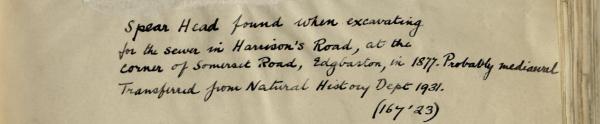 Spear Head found when excavating
for the sewer in Harrison's Road, at the
corner of Somerset Road, Edgbaston, in 1877. Probably mediaeval
Transferred from Natural History Dept 1931.
(167'23)